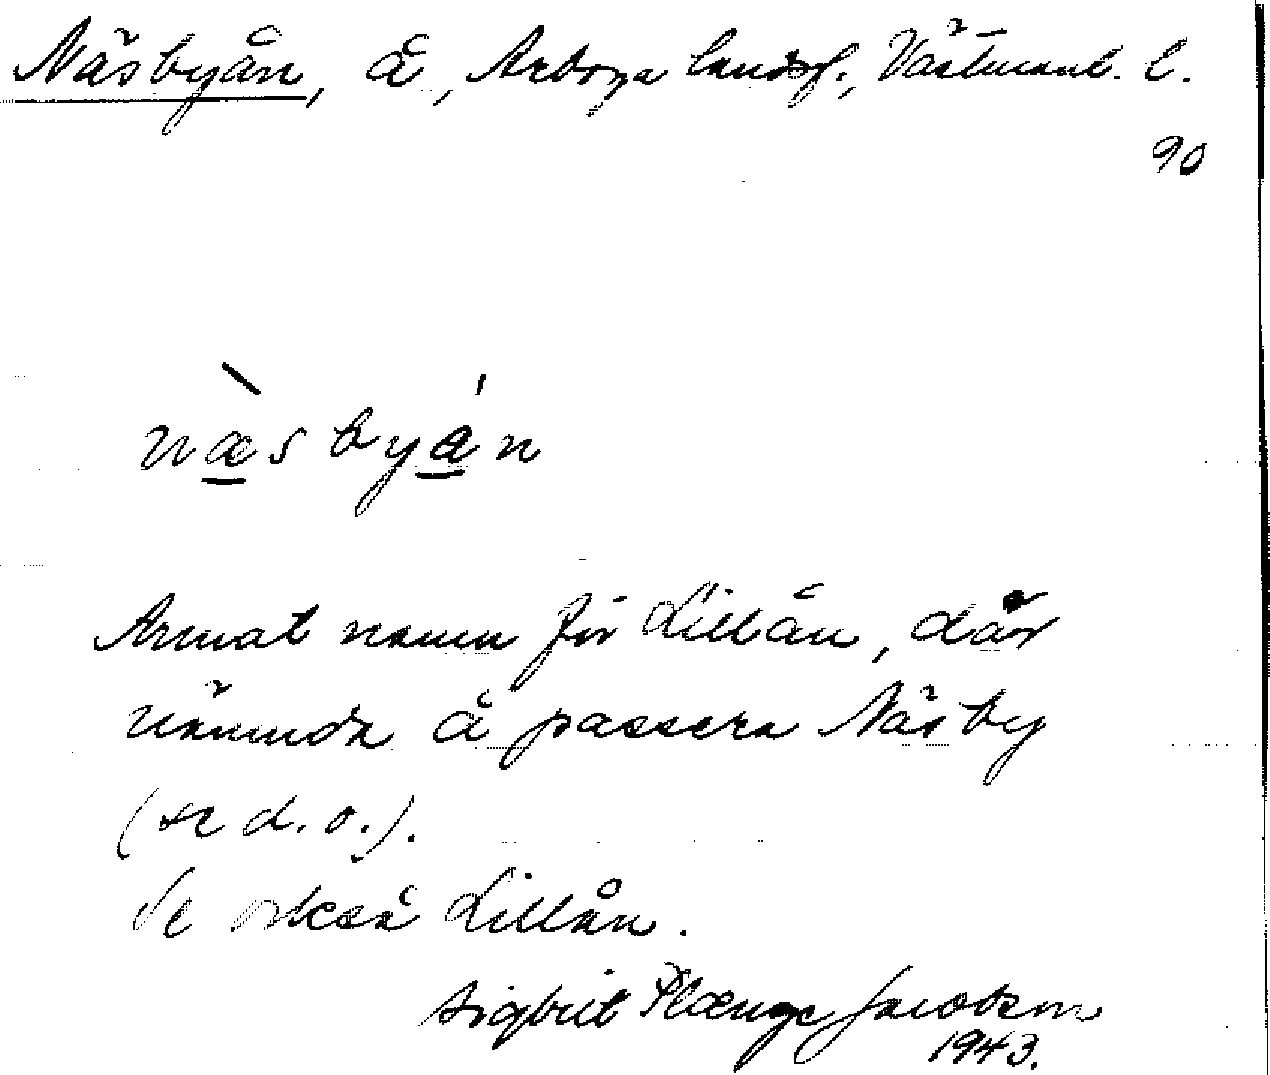 Näsbyån, å, Arboga landsf., Västmanl. l.
90
næ̠̀sbyá̠n
Annat namn för Lillån, där
nämnda å passera Näsby
(se d.o.).
Se också Lillån.
Sigbrit Plænge Jacobson
1943.